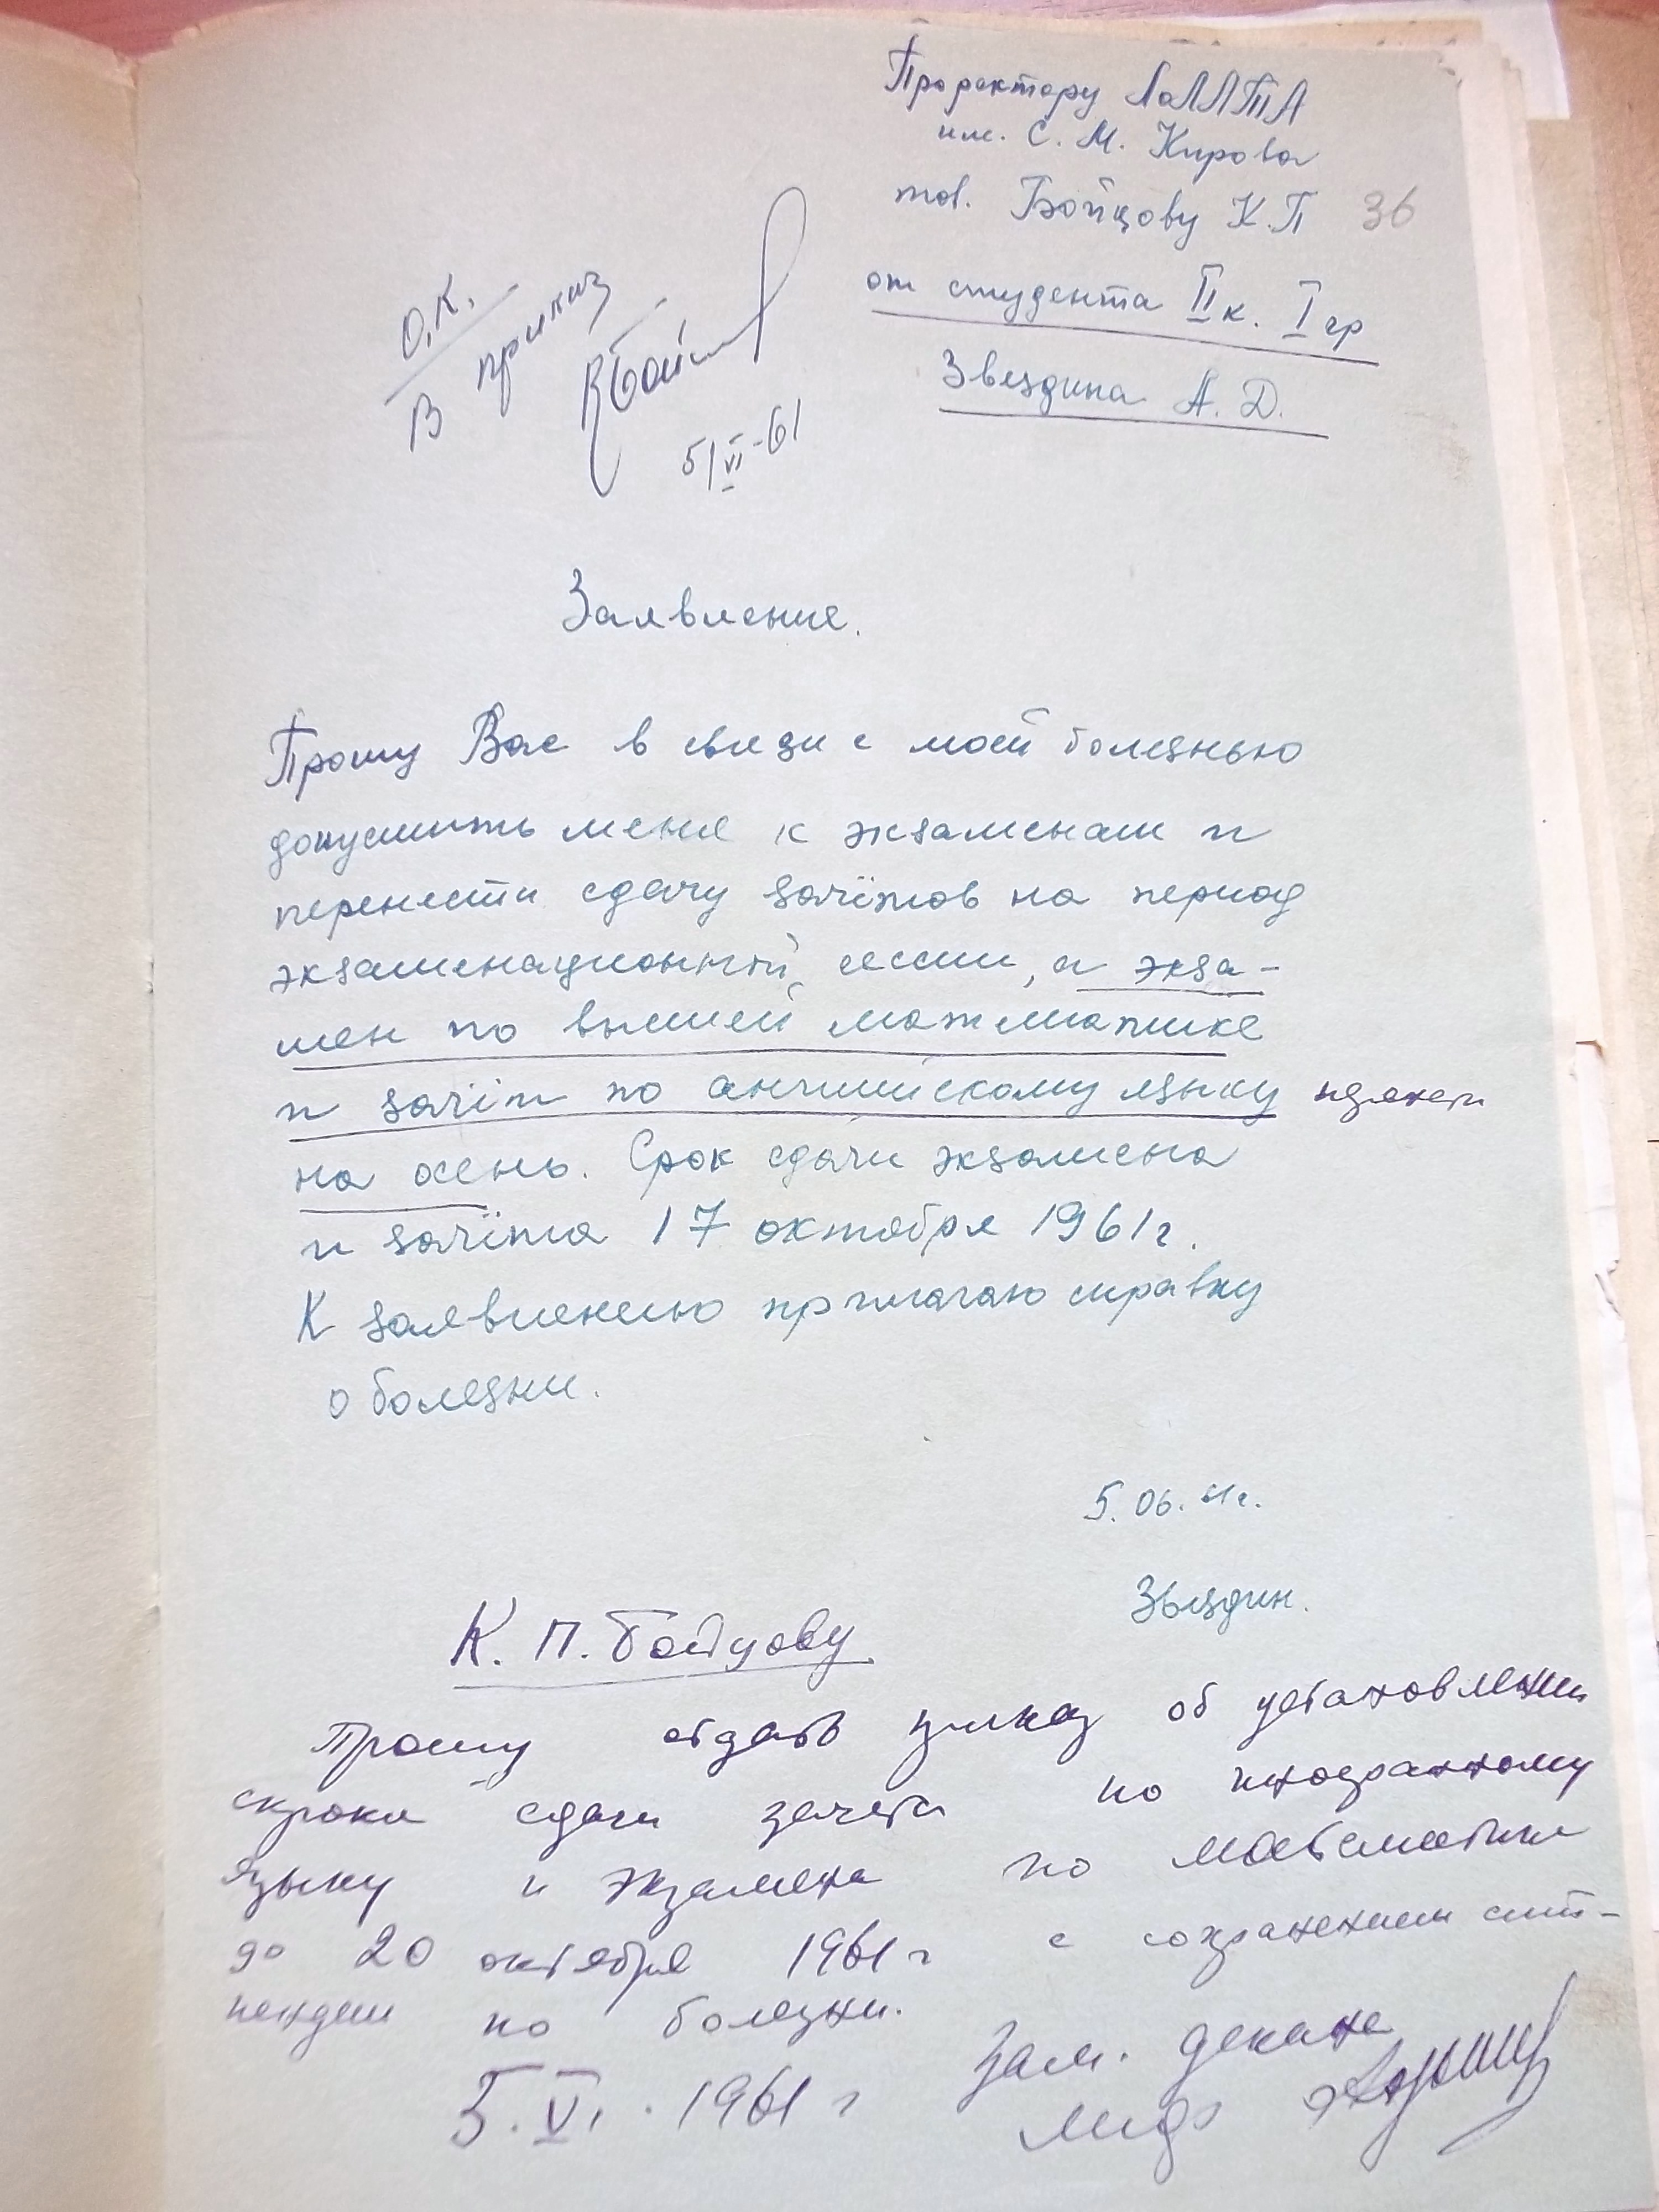 Проректору ЛОЛЛТА
им. С. М. Кирова
тов. Бойцову К.П 36
от студента II к. I гр
Звездина А. Д.
О.К.
В приказ
КБойцов
5/VI-61
Заявление.
Прошу Вас в связи с моей болезнью
допустить меня к экзаменам и
перенести сдачу зачётов на период
экзаменационной сессии, а экза-
мен по высшей математике
и зачёт по английскому языку
на осень. Срок сдачи экзамена
и зачёта 17 октября 1961г.
К заявлению прилагаю справку
о болезни.
5. 06. 61г.
Звездин.
К. П. Бойцову
Прошу отдать приказ об установлении
срока сдачи зачета по иностранному
языку и экзамена по математике
до 20 октября 1961 г с сохранением сти-
пендии по болезни.
Зам. декана
5. VI. 1961 г